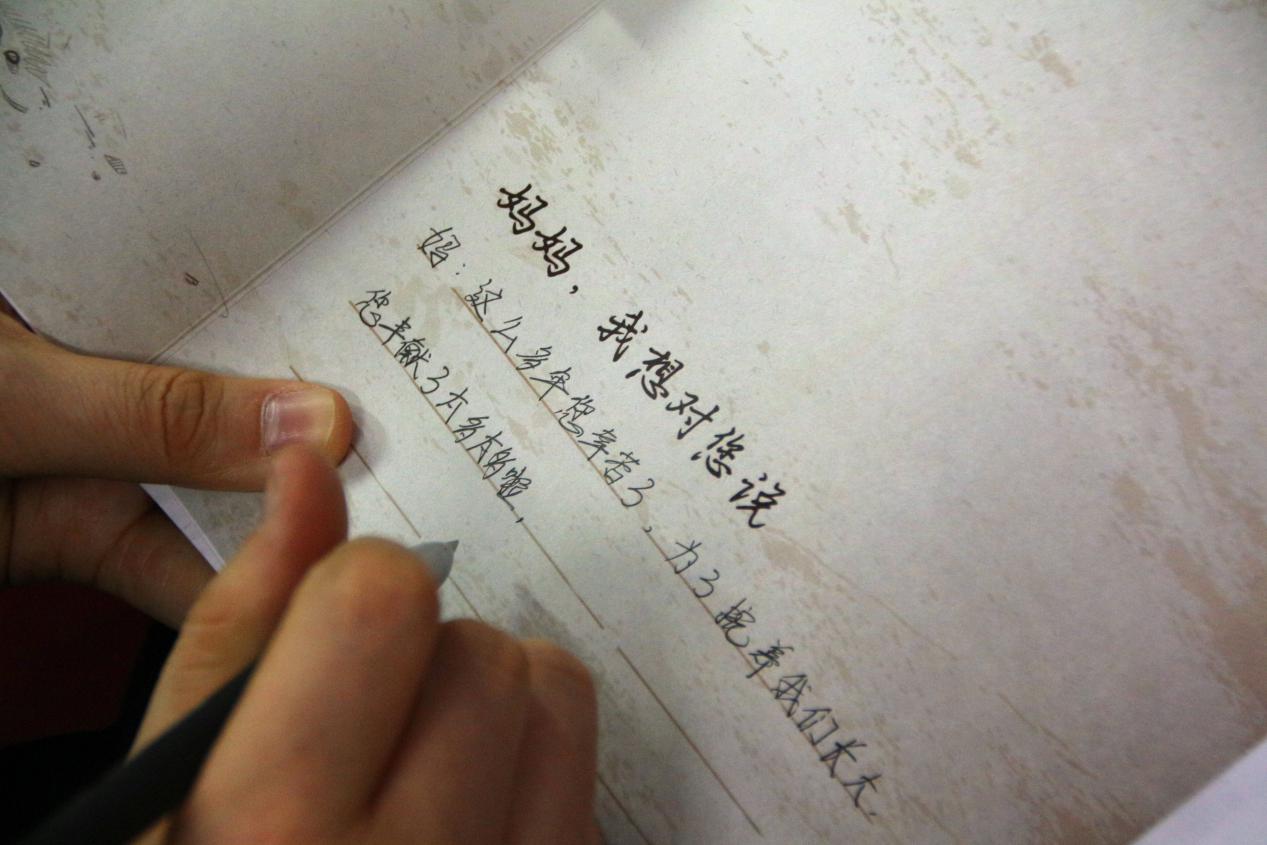 妈妈，我想对您说
妈：这么多年您辛苦了，为了抚养我们长大，
您奉献了太多太的